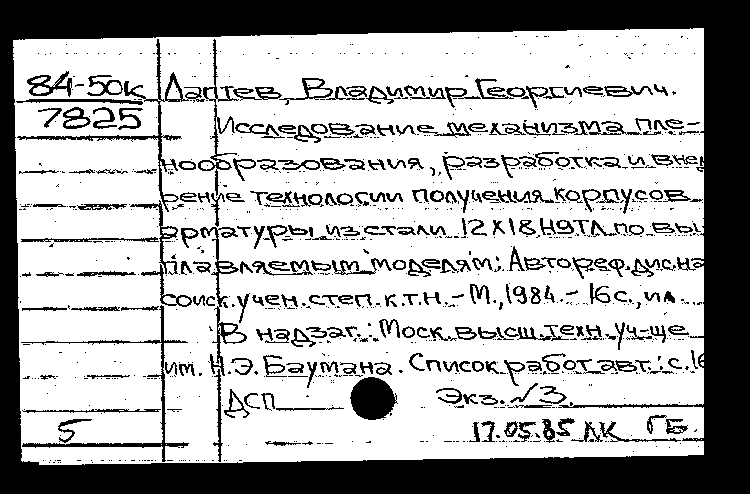 84-50к Лаптев, Владимир Георгиевич.
7825 Исследование механизма пле-
нообразования, разработка и внед
рение технологии получения корпусов
арматуры из стали 12Х18Н9ТЛ по вы
плавляемым моделям: Автореф. дис на
соиск. учен. степ. к.т.н. - М., 1984. - 16 с., ил
В надзаг.: Моск. высш. техн. уч-ще
им. Н.Э. Баумана. Список работ авт.: с. 16
ДСП Экз. √3.
5 17.05.85 ЛК ГБ.